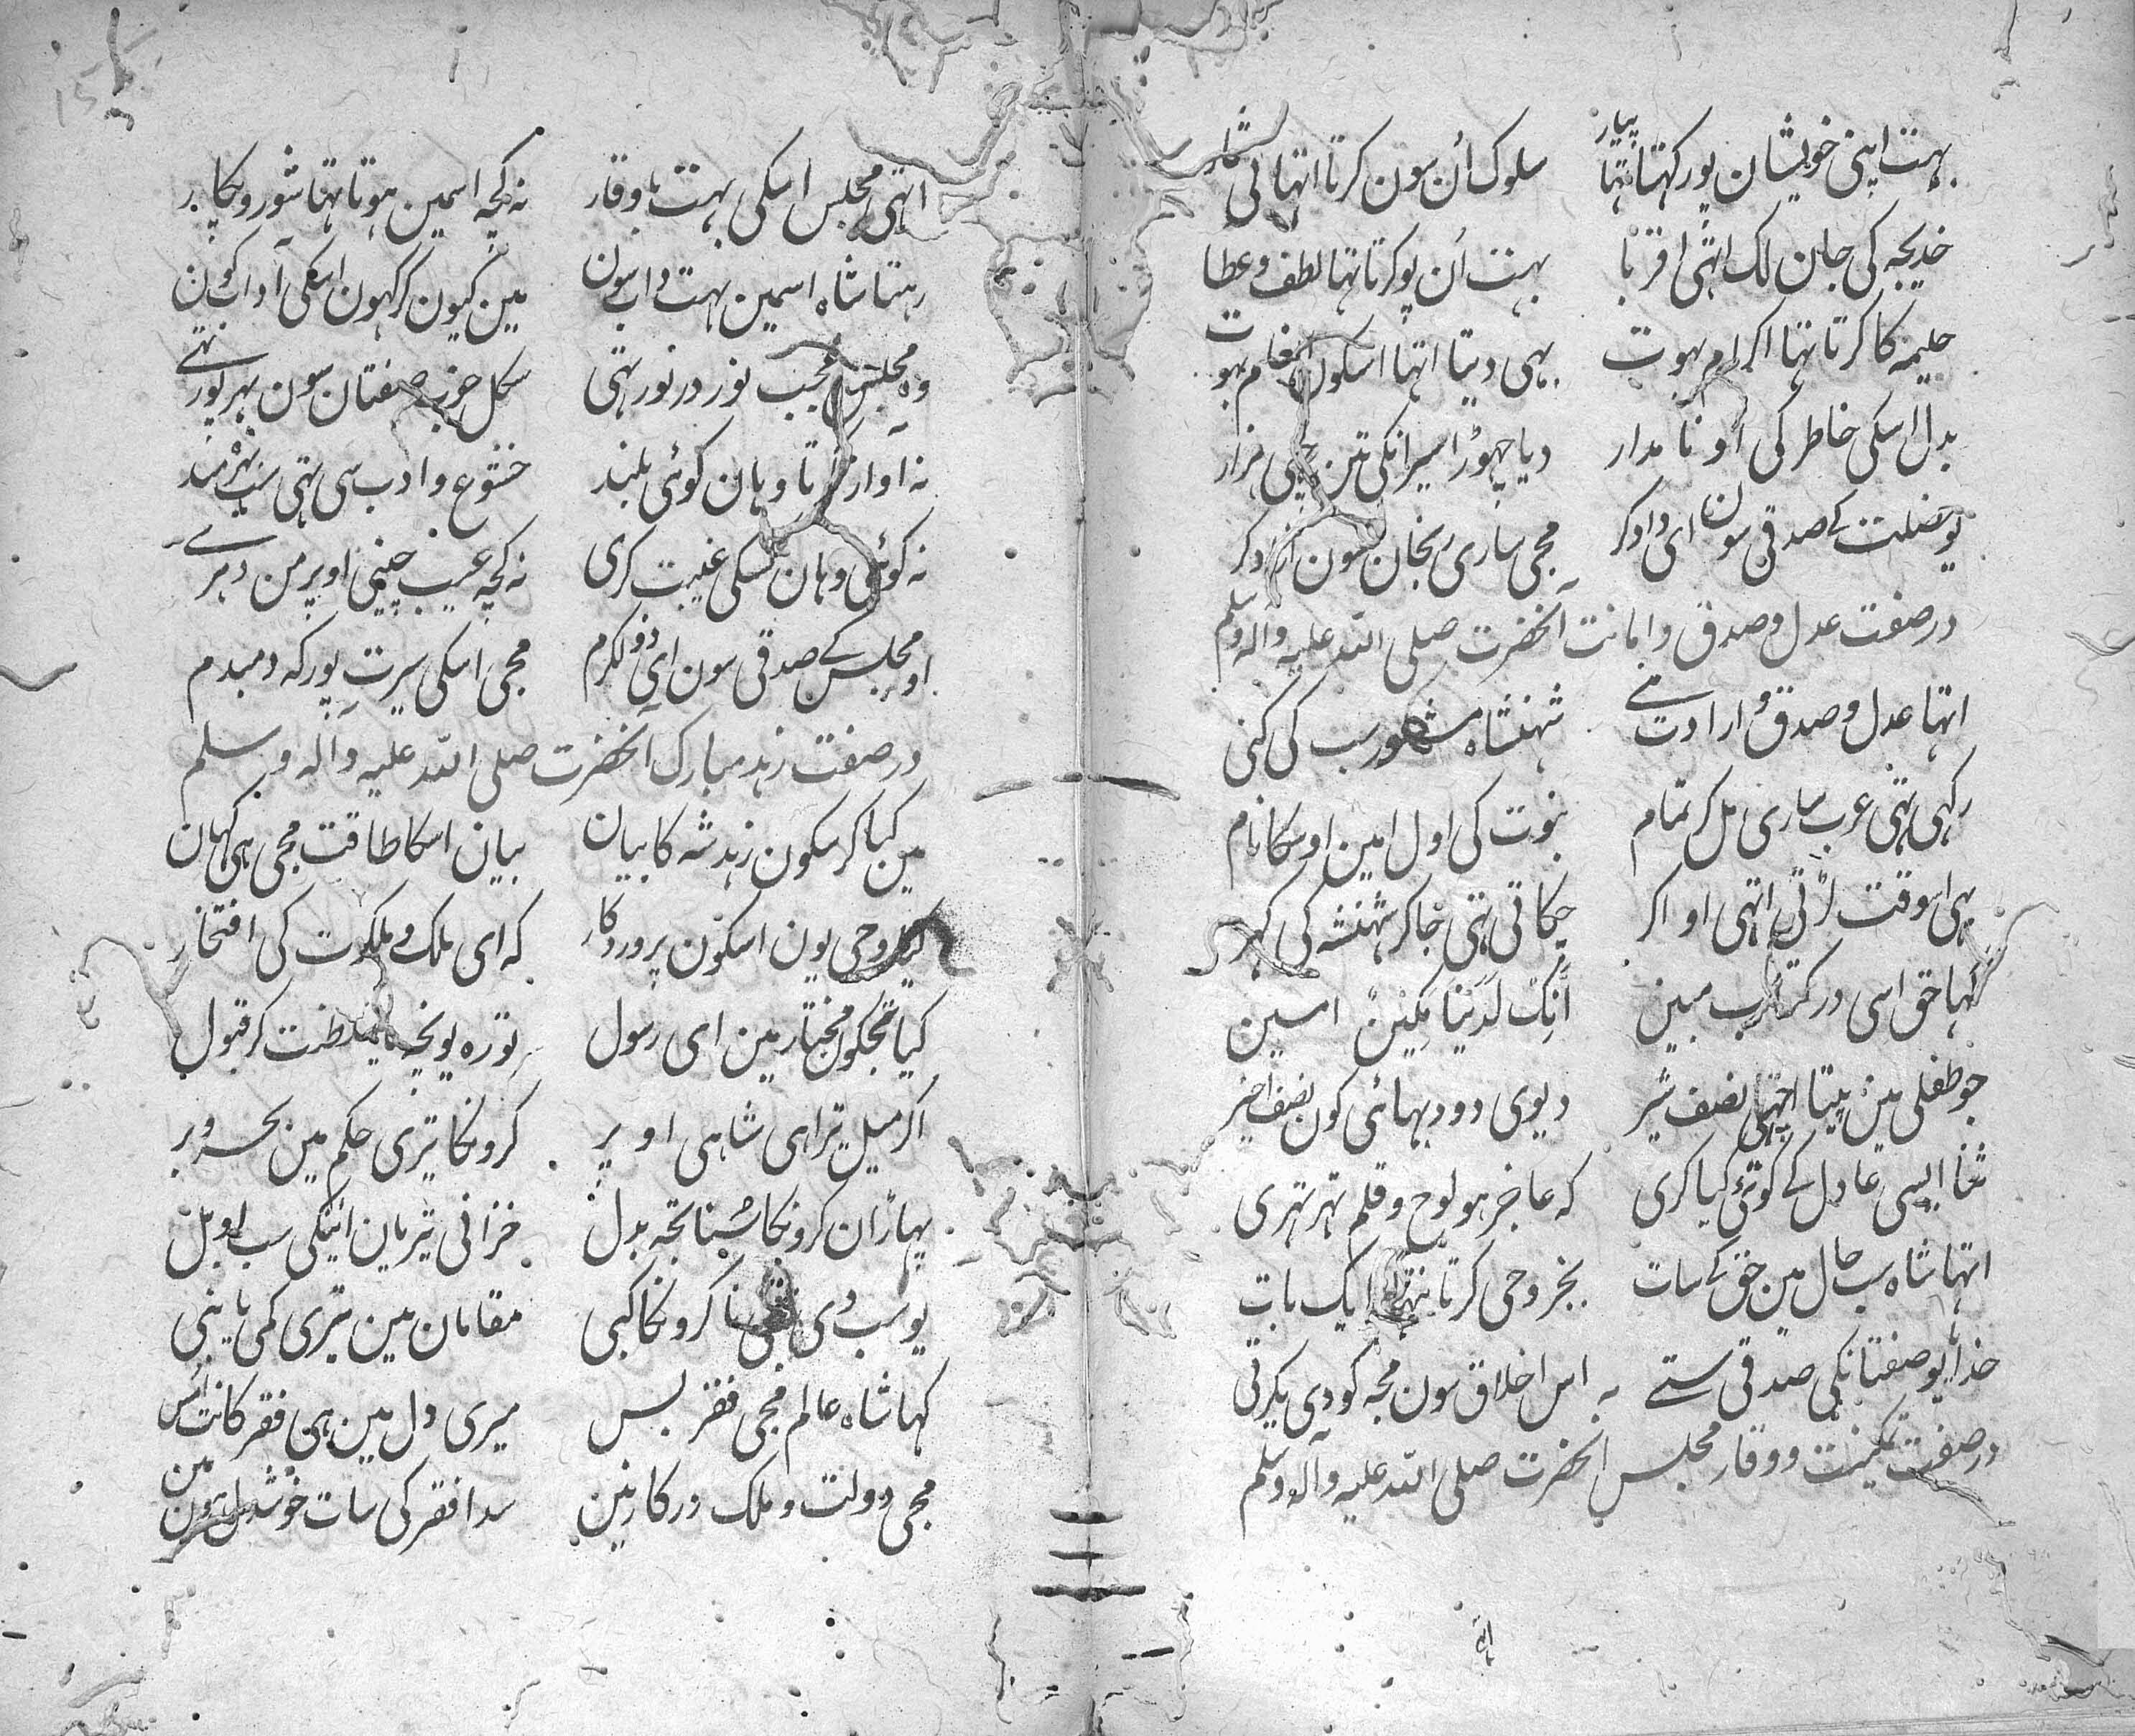 بہت اپنی خویشان پو رکہتا تہا پیار سلوک اُن سون کرتا اتہا بی شمار
خدیجہ کی جان لک اتہی اقربا بہت اُن پو کرتا تہا لطف و عطا
حلیمہ کا کرتا تہا اکرام بہوت بہی دیتا اتہا اسکون انعام بہوت
بدل اسکی خاطر کی او نامدار دیا چہوڑ اسیرانکی تین چہی ہزار
یو خصلت کے صدقی سون ای داوکر مجی ساری رنجان سون آزاد کر
در صفت عدل و صدق و امانت آنحضرت صلی اللہ علیہ وآلہ وسلم
اتہا عدل و صدق و ارادت منے شہنشاہ مشہور سب کی کنی
رکہی تہی عرب ساری مل کر تمام نبوت کی اول امین اوسکا نام
بہی اسوقت لڑتی اتہی او اکر چکاتی تہی جا کر شہنشہ کی کہر
کہا حق اسی در کتاب مبین اَنِّکَ لَدَیْنَا مَکِیْنٌ امین
جو طفلی مین پیتا اتہا نصف شیر دیوی دود بہائی کون نصف اخیر
ثنا ایسی عادل کے کوئی کیا کری کہ عاجز ہو لوح و قلم تہرتہری
اتہا شاہ سب حال مین حق کے سات بجز وحی کرتا نہتا ایک بات
خدایا یو صفتانکی صدقی ستے بہ اس اخلاق سون مجہ کو دی یکرتی
در صفت تمکینت و وقار مجلس آنحضرت صلی اللہ علیہ وآلہ وسلم
اتہی
اتہی مجلس اسکی بہت با وقار نہ کچہ اسمین ہوتا تہا شور و پکار
رہتا شاہ اسمین بہت داب سون مین کیون کر کہون اسکی آداب کون
وہ مجلس عجب نور در نور تہی سکل خوب صفتان سون بہرپور تہے
نہ آواز کرتا وہان کوئی بلند خشوع و ادب سی تہی سب بہرہ مند
نہ کوئی وہان کسکی غیبت کری نہ کچہ عیب چینی اوپر من دہرے
او مجلس کے صدقی سون ای ذو الکرم مجی اسکی سیرت پو رکہ دمبدم
در صفت زہد مبارک آنحضرت صلی اللہ علیہ وآلہ وسلم
مین کیا کر سکون زہد شہ کا بیان بیان اسکا طاقت مجی ہی کہان
کیا وحی یون اسکون پروردکار کہ ای ملک و ملکوت کی افتخار
کیا تجکون مختار مین ای رسول تو رہ یونچہ یا سلطنت کر قبول
اکر میل تیرا ہی شاہی اوپر کرونکا تیری حکم مین بحر و بر
پہاڑان کرونکا سُنا تجہ بدل خزانی تیریان اینکی سب ابل
یو سب دی نقی نا کرونکا کبی مقامان مین تیری کمی یا نبی
کہا شاہ عالم مجی فقر بس میری دل مین ہی فقر کا نت اُس
مجی دولت و ملک درکار نین سدا فقر کی سات خوشدل ہون مین